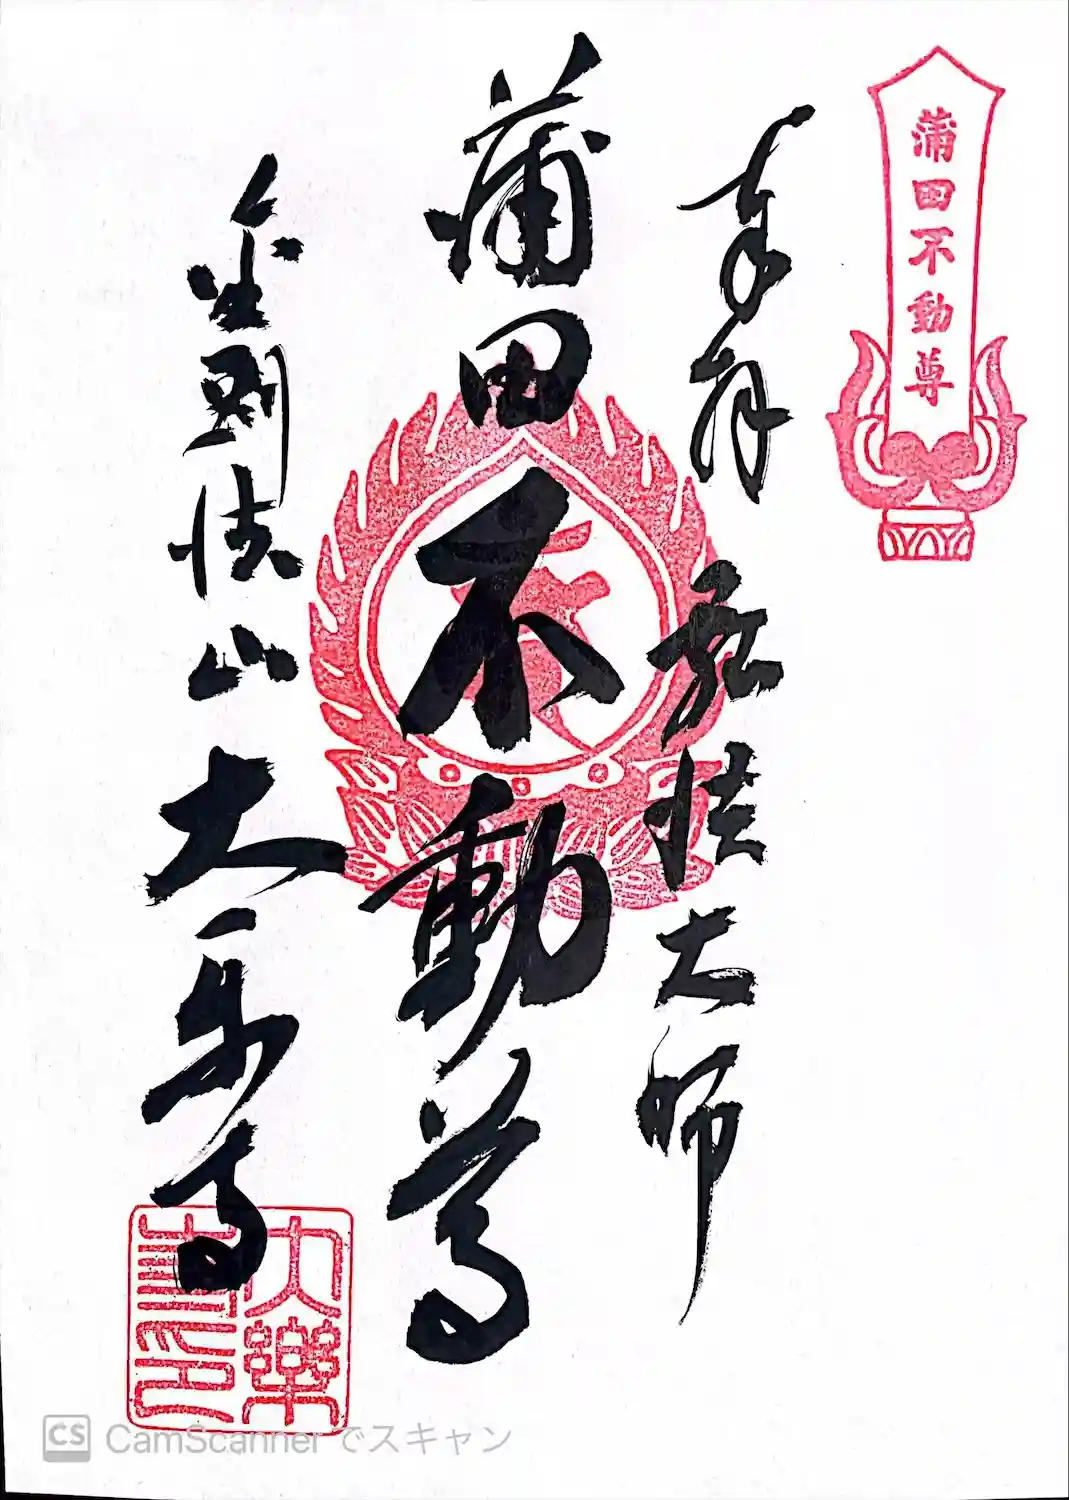 蒲田不動尊
奉拝 弘法大師
蒲田不動尊
金剛法山大楽寺
大樂
寺印
CS CamScanner でスキャン